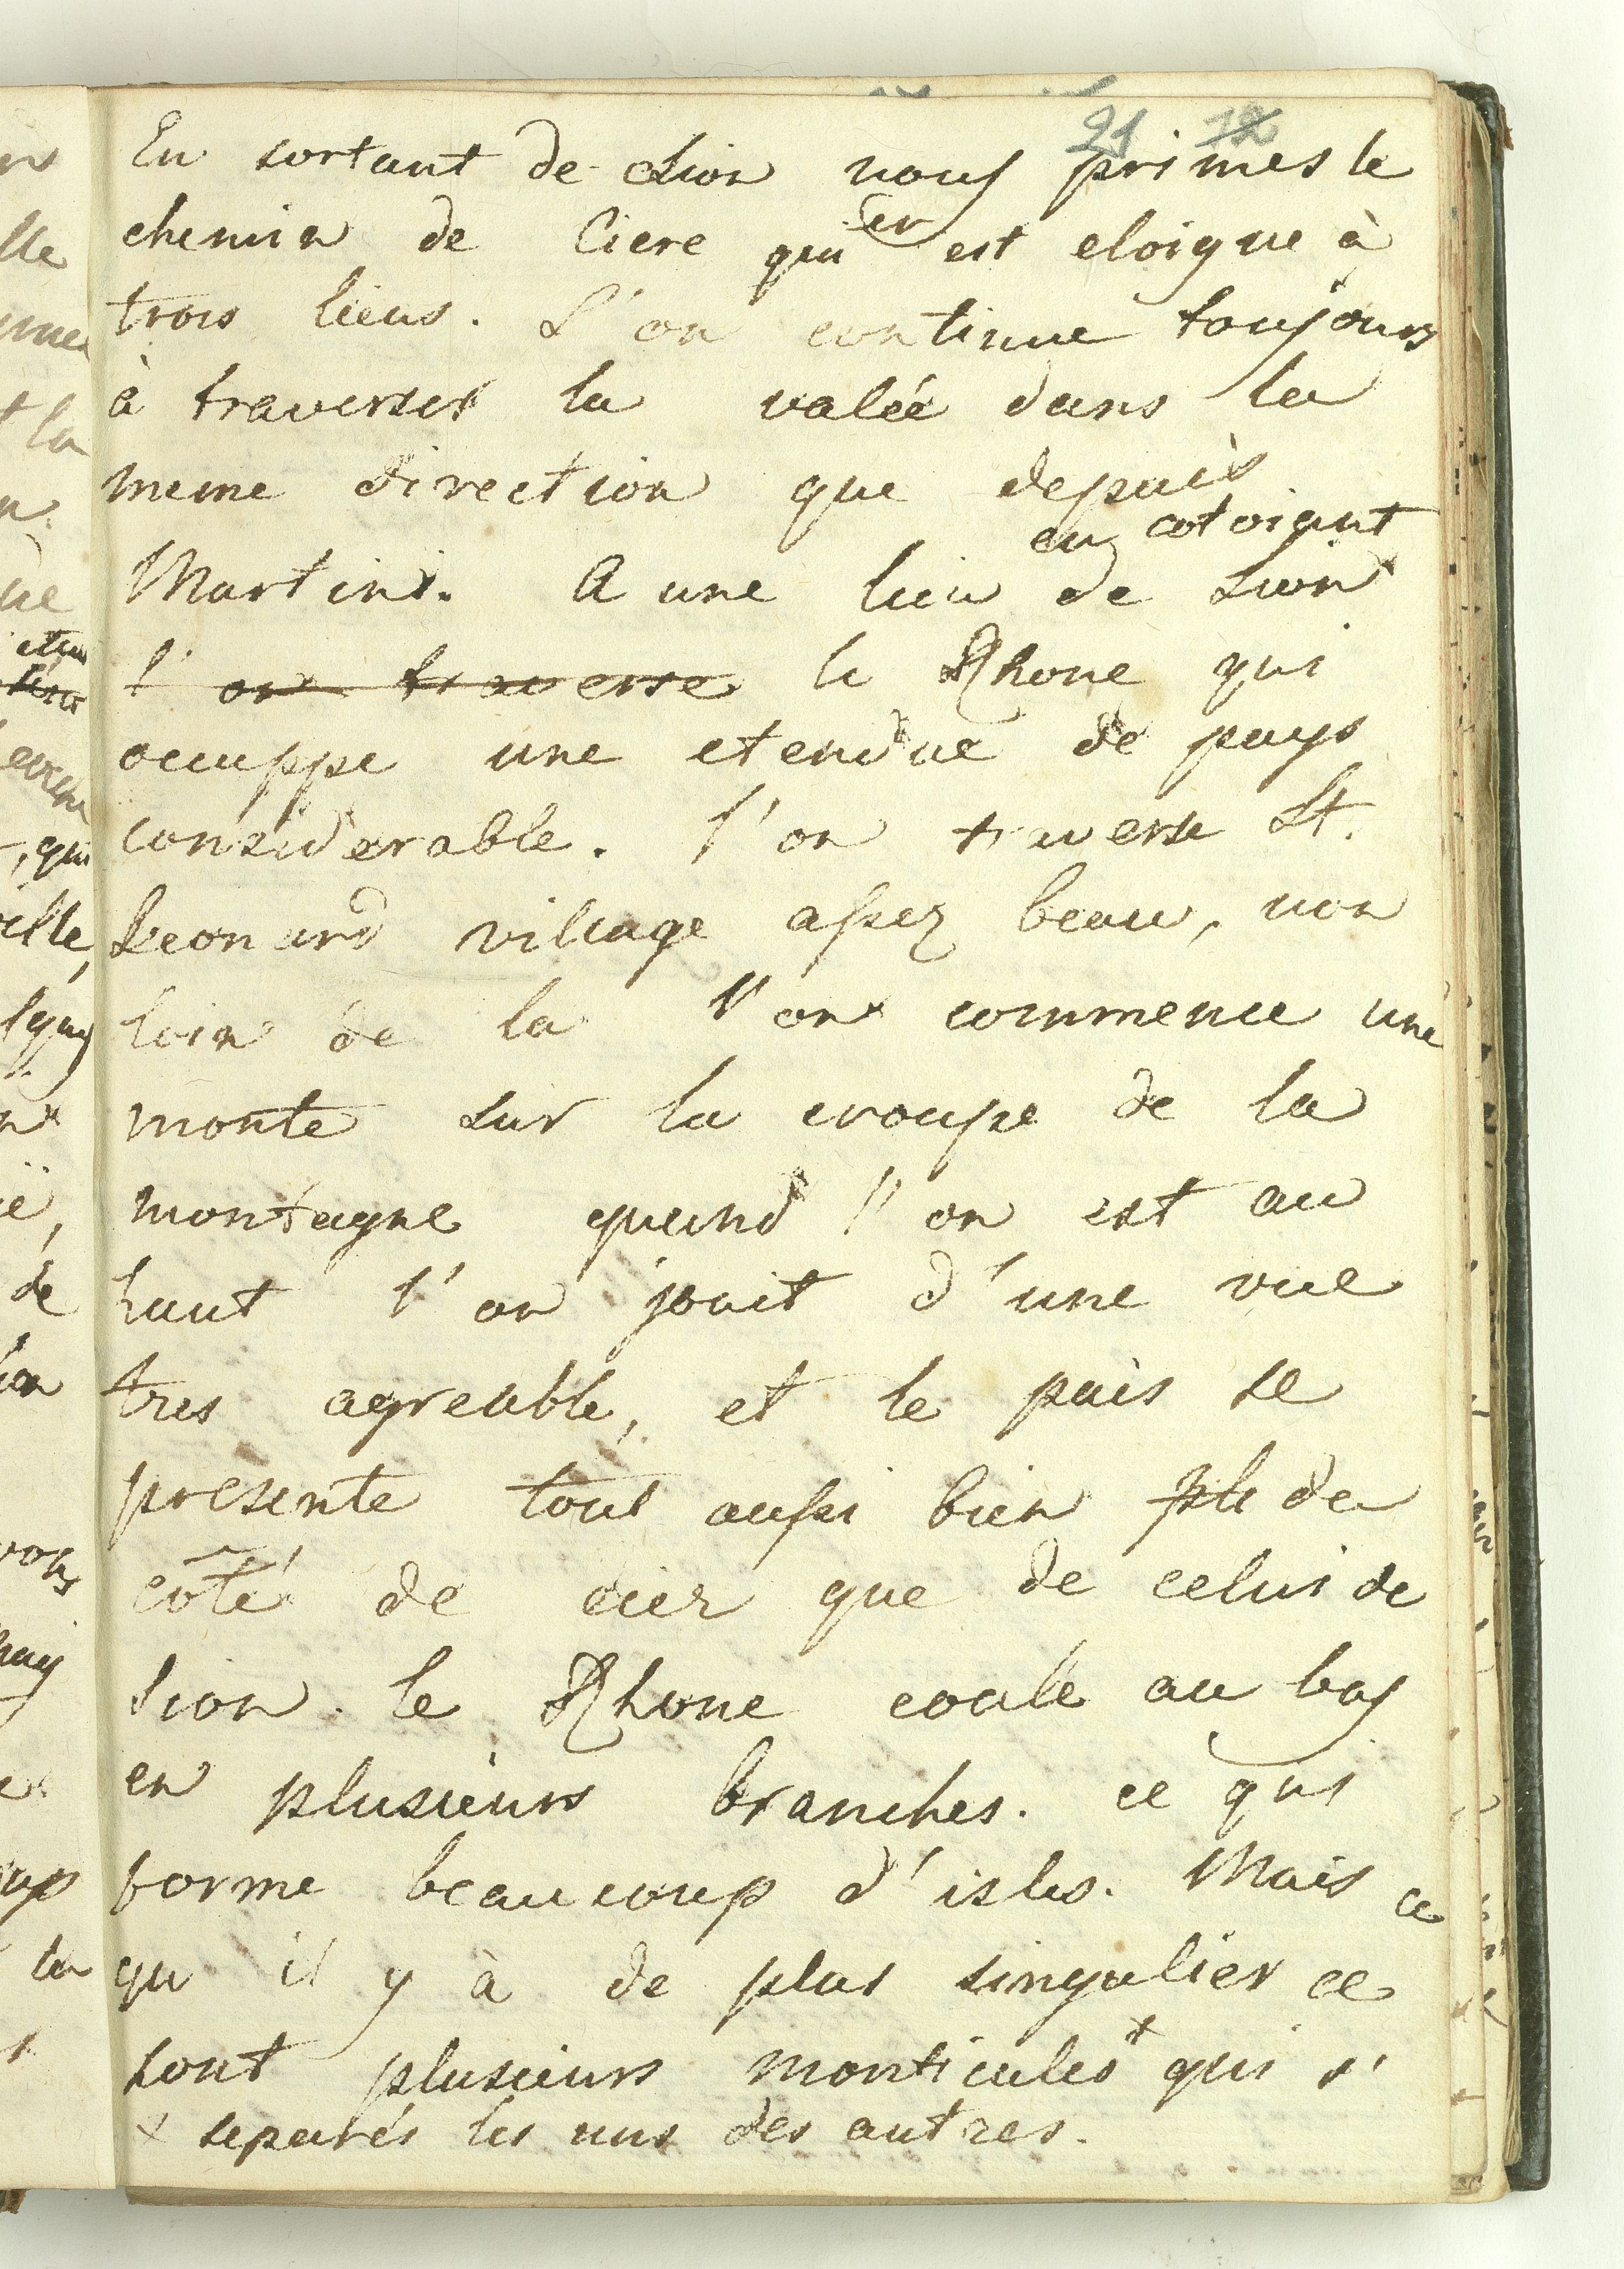 21 12
En sortant de Sion nous primes le
chemin de Ciere qui en est eloigne à
trois lieus. L'on continue toujours
à traverser la valée dans la
meme direction que depuis
en cotoiant
Martini. A une lieu de Sion
l'on traverse le Rhone qui
ocuppe une etendue de pays
considerable. l'on traverse St.
Leonard village assez beau, non
loin de la l'on commence une
monte sur la croupe de la
montagne quand l'on est au
haut l'on jouit d'une vue
tres agreable, et le pais se
presente tout aussi bien de
côté de cier que de celui de
Sion. le Rhone coule au bas
en plusieurs branches. ce qui
forme beaucoup d'isles. Mais ce
qu il y à de plus singulier ce
sont plusieurs monticules x qui s'
x separés les uns des autres.